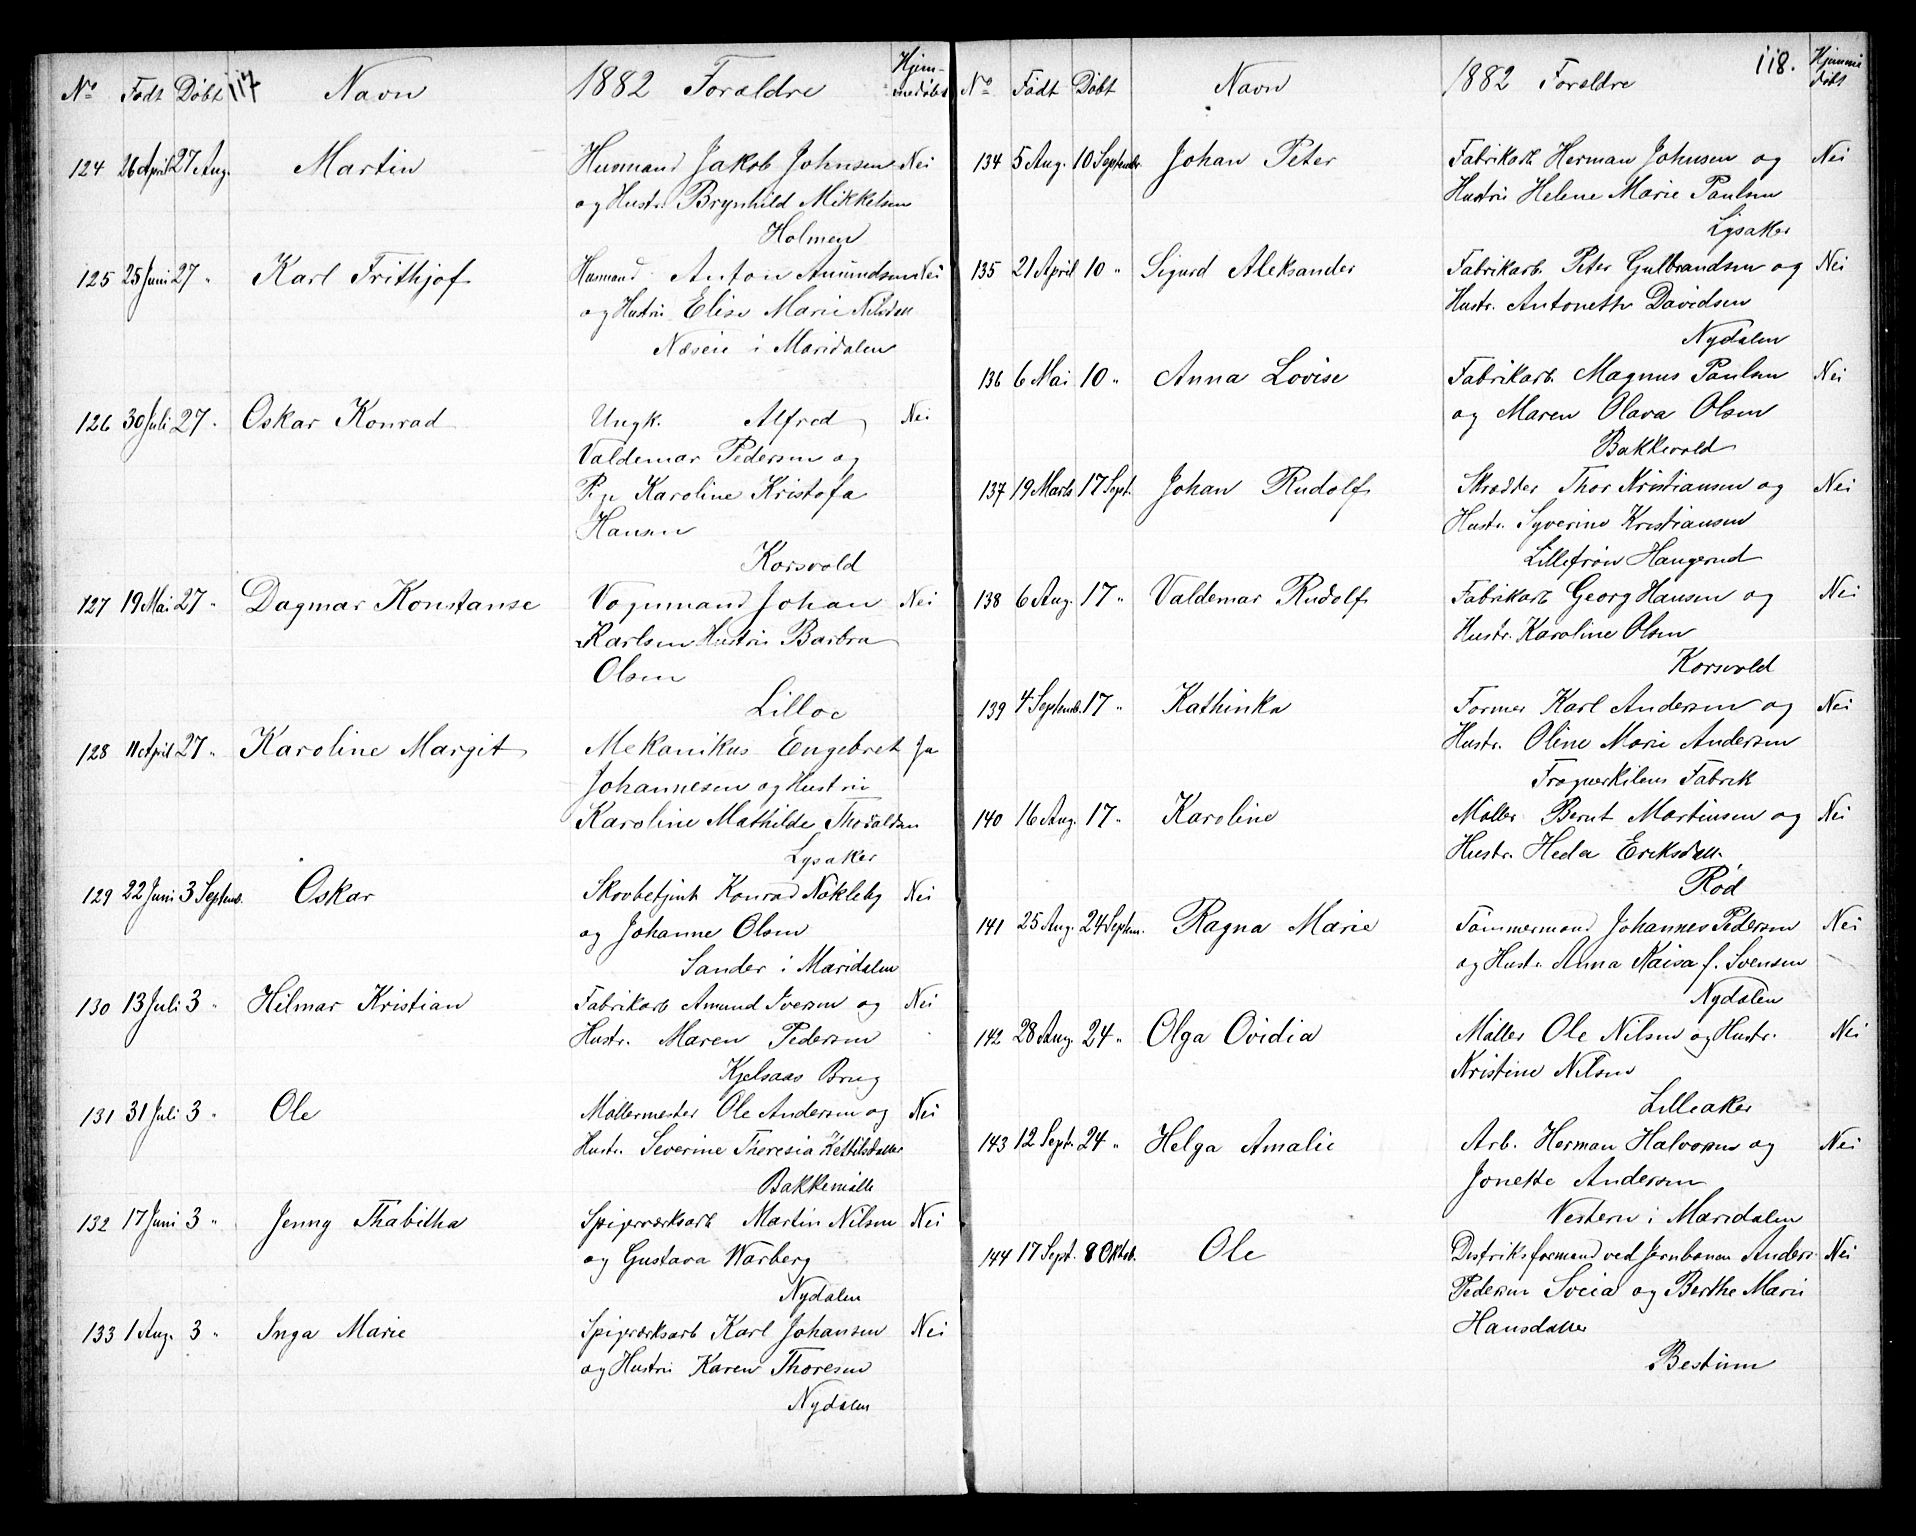 No Født Døbt 117 Navn 1882 Forældre Hjem-
medøbt
124 26 April 27 Aug. Martin Husmand Jakob Johnsen Nei
og Hustr. Brynhild Mikkelsen
Holmen
125 25 Juni 27 " Karl Frithjof Husmand Anton Amundsen Nei
og Hustru Elise Marie Nilsdatt
Næseie i Maridalen
126 30 Juli 27 " Oskar Konrad Ungk. Alfred Nei
Valdemar Pedersen og
Pige Karoline Kristofa
Hansen
Korsvold
127 19 Mai 27 " Dagmar Konstanse Vognmand Johan Nei
Karlsen Hustru Barbra
Olsen
Lilloe
128 11 April 27 " Karoline Margit Mekanikus Engebret Ja
Johannesen og Hustru
Karoline Mathilde Thovaldsen
Lysaker
129 22 Juni 3 Septemb. Oskar Skovbetjent Konrad Nökleby Nei
og Johanne Olsen
Sander i Maridalen
130 13 Juli 3 " Hilmar Kristian Fabrikarb Amund Iversen og Nei
Hustr. Maren Pedersen
Kjelsaas Brug
131 31 Juli 3 " Ole Møllermester Ole Andersen og Nei
Hustr. Severine Theresia Kettilsdatter
Bakkemølle
132 17 Juni 3 " Jenny Thabitha Spigerværksarb Martin Nilsen Nei
og Gustava Warberg
Nydalen
133 1 Aug. 3 " Inga Marie Spigerværksarb Karl Johansen Nei
og Hustru Karen Thoresen
Nydalen
No Født Døbt Navn 1882 Forældre 118. Hjemme
døbt
134 5 Aug. 10 Septembr. Johan Peter Fabrikarb Herman Johnsen og Nei
Hustru Helene Marie Paulsen
Lysaker
135 21 April 10 " Sigurd Aleksander Fabrikarb. Peter Gulbrandsen og Nei
Hustr. Antonette Davidsen
Nydalen
136 6 Mai 10 " Anna Lovise Fabrikarb. Magnus Paulsen Nei
og Maren Olava Olsen
Bakkevold
137 19 Marts 17 Sept. Johan Rudolf Skrædder Thor Kristiansen og Nei
Hustr. Syverine Kristiansen
Lillefrøn Haugerud
138 6 Aug. 17 " Valdemar Rudolf Fabrikarb Georg Hansen og Nei
Hustr. Karoline Olsen
Korsvold
139 4 Septemb. 17 " Kathinka Former Karl Andersen og Nei
Hustr. Oline Marie Andersen
Frognerkilens Fabrik
140 16 Aug. 17 " Karoline Møller Bernt Martinsen og Nei
Hustr. Heda Eriksdatt.
Rød
141 25 Aug. 24 Septem. Ragna Marie Tømmermand Johannes Pedersen Nei
og Hustr. Anna Kaisa f. Svensen
Nydalen
142 28 Aug. 24 " Olga Ovidia Møller Ole Nilsen og Hustr. Nei
Kristine Nilsen
Lilleaker
143 12 Sept. 24 " Helga Amalie Arb. Herman Halvorsen og Nei
Jonette Andersen
Vestern i Maridalen
144 17 Sept. 8 Oktob. Ole Distriksformand ved Jernbanen Anders Nei
Pedersen Sveia og Berthe Marie
Hansdatter
Bestum